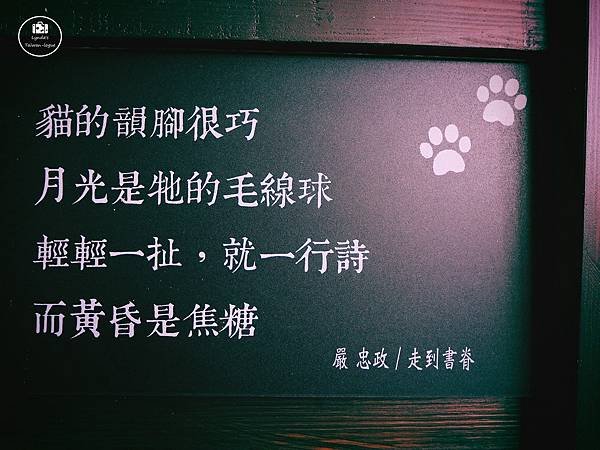 Lynda's
Taiwan-logue
貓的韻腳很巧
月光是牠的毛線球
輕輕一扯，就一行詩
而黃昏是焦糖
嚴 忠政/走到書脊